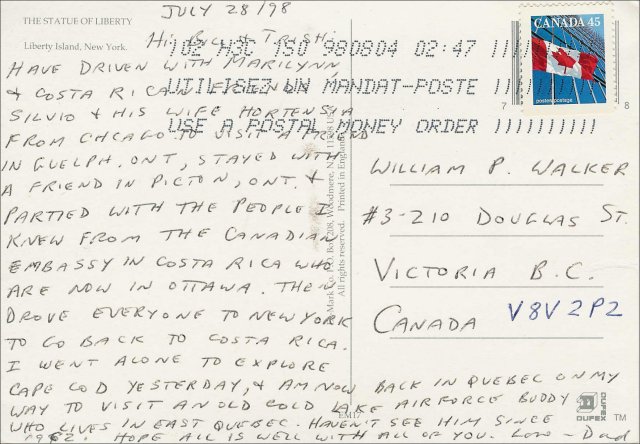 JULY 28/98
THE STATUE OF LIBERTY
Liberty Island, New York.
HI BILL & TRISH:
HAVE DRIVEN WITH MARILYNN
& COSTA RICAN FRIENDS
SILVIO & HIS WIFE HORTENSIA
FROM CHICAGO TO VISIT A FRIEND
IN GUELPH. ONT, STAYED WITH
A FRIEND IN PICTON, ONT. &
PARTIED WITH THE PEOPLE I
KNEW FROM THE CANADIAN
EMBASSY IN COSTA RICA WHO
ARE NOW IN OTTAWA. THEN
DROVE EVERYONE TO NEW YORK
TO GO BACK TO COSTA RICA.
I WENT ALONE TO EXPLORE
CAPE COD YESTERDAY, & AM NOW BACK IN QUEBEC ON MY
WAY TO VISIT AN OLD COLD LAKE AIRFORCE BUDDY
WHO LIVES IN EAST QUEBEC. HAVEN'T SEE HIM SINCE
62. HOPE ALL IS WELL WITH ALL OF YOU. Dad
102 H3C 1S0 980804 02:47
UTILISEZ UN MANDAT-POSTE
USE A POSTAL MONEY ORDER
CANADA 45
postes/postage
7 8
Mark Co. P.O. Box 208, Woodmere, N.Y. 11598 USA
All rights reserved. Printed in England
WILLIAM P. WALKER
#3-210 DOUGLAS ST.
VICTORIA B.C.
CANADA V8V 2P2
EM17
DUFEX
DUFEX
TM